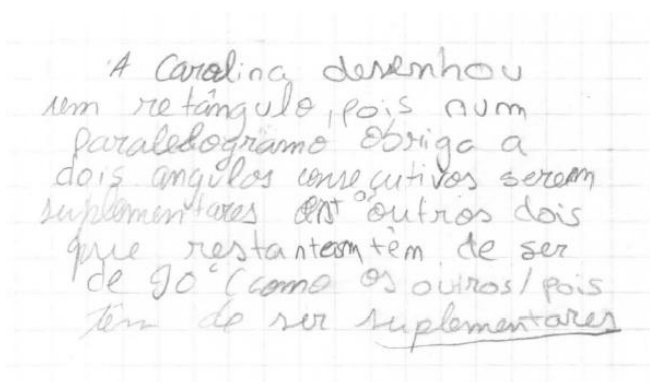 A Carolina desenhou
um retângulo, pois num
paralelogramo obriga a
dois angulos consecutivos serem
suplementares os outros dois
que restantem têm de ser
de 90° (como os outros) pois
têm de ser suplementares